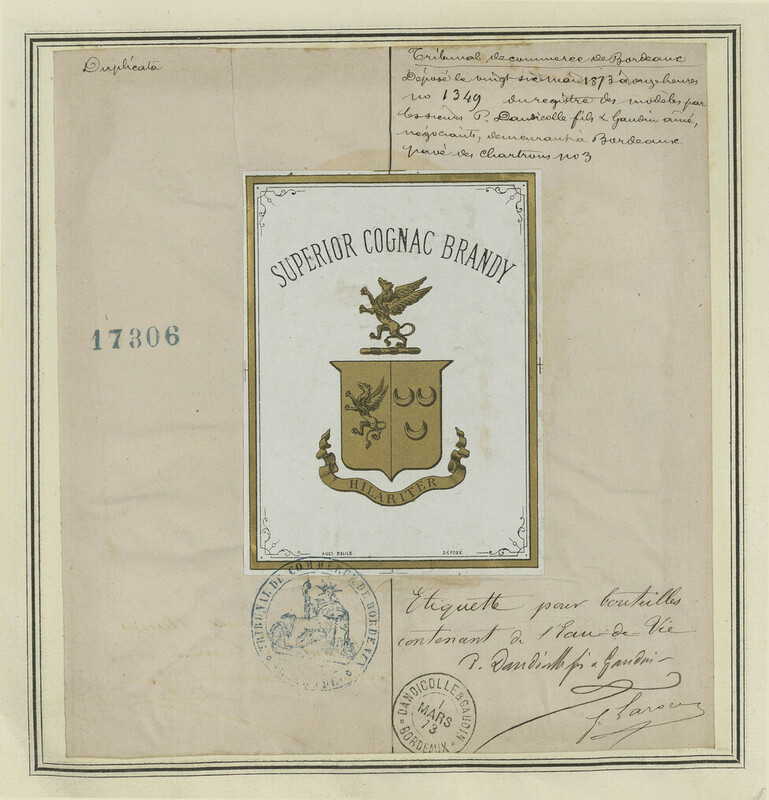 Duplicata
Tribunal de commerce de Bordeaux
Déposé le vingt six mai 1873 à onze heures
no 1349 du registre des modèles par
les sieurs P. Dandicolle fils & Gaudin ainé,
négociants, demeurant à Bordeaux
pavé des Chartrons no 3
SUPERIOR COGNAC BRANDY
17306
HILARITER
AUGE DELILE DÉPOSÉ
TRIBUNAL DE COMMERCE DE BORDEAUX
Etiquette pour bouteilles
contenant de l'Eau de Vie
P. Dandicolle fils & Gaudin
DANDICOLLE & GAUDIN
1
MARS
73
BORDEAUX